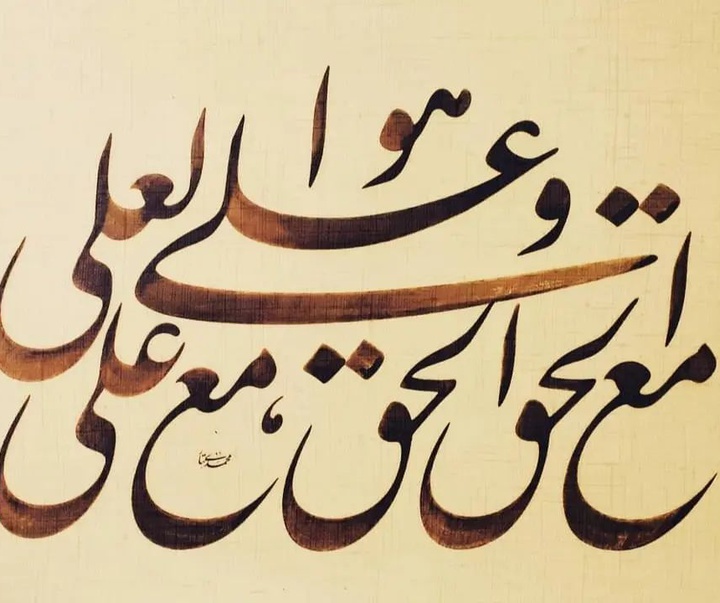 هو العلی
و علی مع الحق الحق مع علی